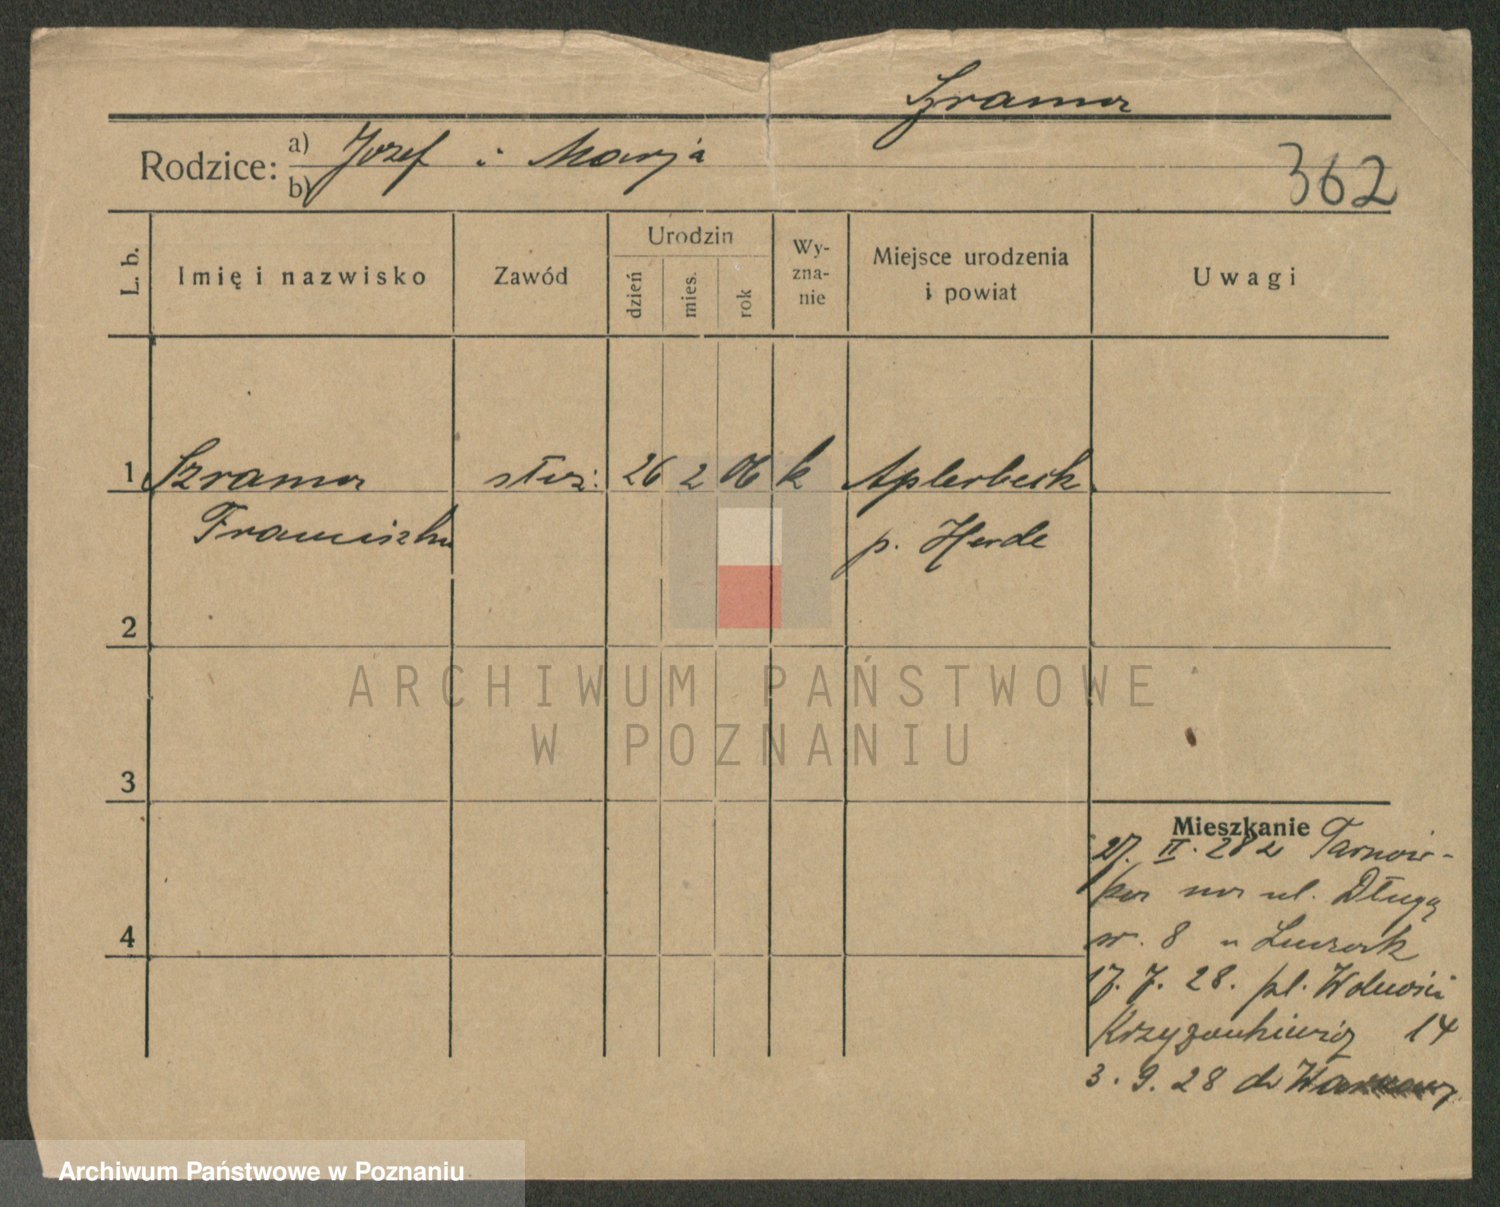 Szrama
Rodzice: a) Józef i Marja
b)
362
L. b.
Imię i nazwisko
Zawód
Urodzin
dzień
mies.
rok
Wy-
zna-
nie
Miejsce urodzenia
i powiat
Uwagi
1 Szrama służ. 26 2 06 k Aplerbeck
Franciszka p. Herde
2
3
4
Mieszkanie
27. II. 28 z Tarnow-
ul. Długą
nr. 8 u
17. 7. 28. pl. Wolności
14
3. 9. 28 do Warszawy
ARCHIWUM PAŃSTWOWE
W POZNANIU
Archiwum Państwowe w Poznaniu